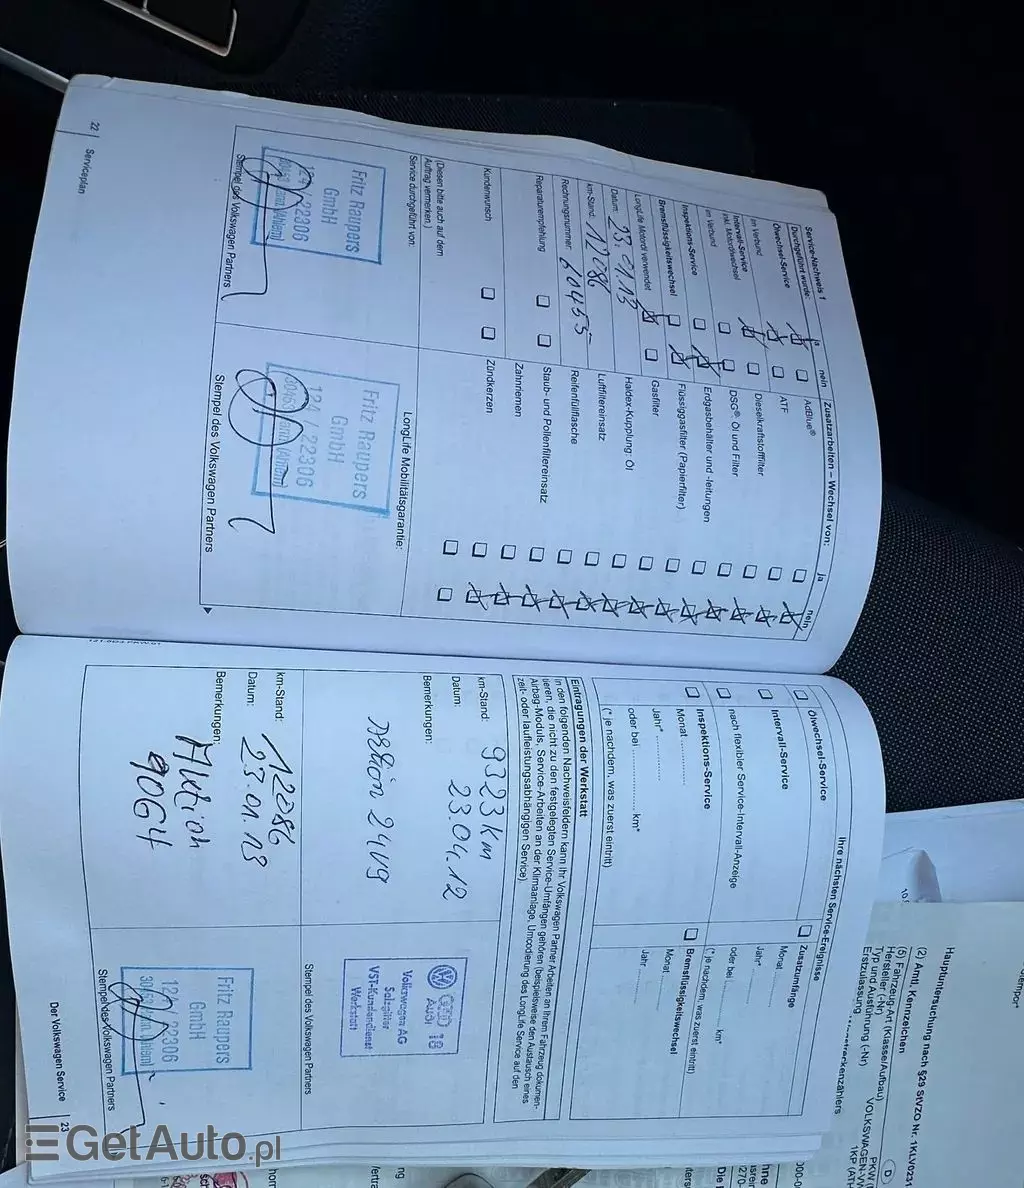 Service-Nachweis 1
Durchgeführt wurde: ja nein
Ölwechsel-Service
im Verbund
Intervall-Service
inkl. Motorölwechsel
im Verbund
Inspektions-Service
Bremsflüssigkeitswechsel
LongLife Motoröl verwendet
Datum: 23.01.13
km-Stand: 12086
Rechnungsnummer:
Reparaturempfehlung
Kundenwunsch
(Diesen bitte auch auf dem
Auftrag vermerken.)
Service durchgeführt von:
Fritz Raupers
GmbH
124 / 22306
Stempel des Volkswagen Partners
Zusatzarbeiten – Wechsel von: ja nein
AdBlue®
ATF
Dieselkraftstofffilter
DSG®: Öl und Filter
Erdgasbehälter und -leitungen
Flüssiggasfilter (Papierfilter)
Gasfilter
Haldex-Kupplung: Öl
Luftfiltereinsatz
Reifenfüllflasche
Staub- und Pollenfiltereinsatz
Zahnriemen
Zündkerzen
LongLife Mobilitätsgarantie:
Fritz Raupers
GmbH
124 / 22306
Stempel des Volkswagen Partners
22 | Serviceplan
Ihre nächsten Service-Ereignisse
Ölwechsel-Service
Intervall-Service
nach flexibler Service-Intervall-Anzeige
Inspektions-Service
Monat
Jahr*
oder bei km*
(* je nachdem, was zuerst eintritt)
Zusatzumfänge
Monat
Jahr*
oder bei km*
(* je nachdem, was zuerst eintritt)
Bremsflüssigkeitswechsel
Monat
Jahr
Eintragungen der Werkstatt
In den folgenden Nachweisfeldern kann Ihr Volkswagen Partner Arbeiten an Ihrem Fahrzeug dokumen-
tieren, die nicht zu den festgelegten Service-Umfängen gehören (beispielsweise den Austausch eines
Airbag-Moduls, Service-Arbeiten an der Klimaanlage, Umcodierung des LongLife Service auf den
zeit- oder laufleistungsabhängigen Service).
km-Stand: 9323 km
Datum: 23.04.12
Bemerkungen:
Aktion 24V9
Audi
Volkswagen AG
Salzgitter
VST-Kundendienst
Werkstatt
Stempel des Volkswagen Partners
km-Stand: 12086
Datum: 23.01.13
Bemerkungen:
Aktion
90G4
Fritz Raupers
GmbH
22306
Stempel des Volkswagen Partners
Der Volkswagen Service | 23
Hauptuntersuchung nach §29 StVZO Nr. 1KLV0231
(2) Amtl. Kennzeichen
(5) Fahrzeug-Art (Klasse/Aufbau)
Hersteller (-Nr)
Typ und Ausführung (-Nr)
Erstzulassung
D
PKW
VOLKSWAGEN-VW
1KP (ATH
GetAuto.pl